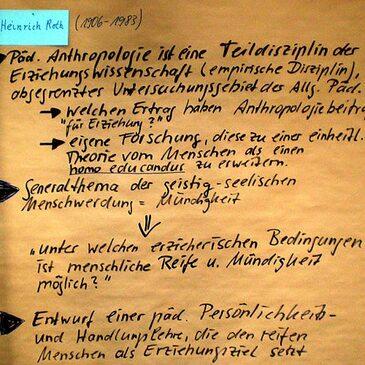 Heinrich Roth (1906-1983)
Päd. Anthropologie ist eine Teildisziplin der
Erziehungswissenschaft (empirische Disziplin),
abgegrenztes Untersuchungsgebiet der Allg. Päd.
→ welchen Ertrag haben Anthropologiebeiträ
"für Erziehung?"
→ eigene Forschung, diese zu einer einheitl.
Theorie vom Menschen als einen
homo educandus zu erweitern.
Generalthema der geistig-seelischen
Menschwerdung = Mündigkeit
⇓
„unter welchen erzieherischen Bedingungen
ist menschliche Reife u. Mündigkeit
möglich?"
Entwurf einer päd. Persönlichkeits-
und Handlungslehre, die den reifen
Menschen als Erziehungsziel setzt